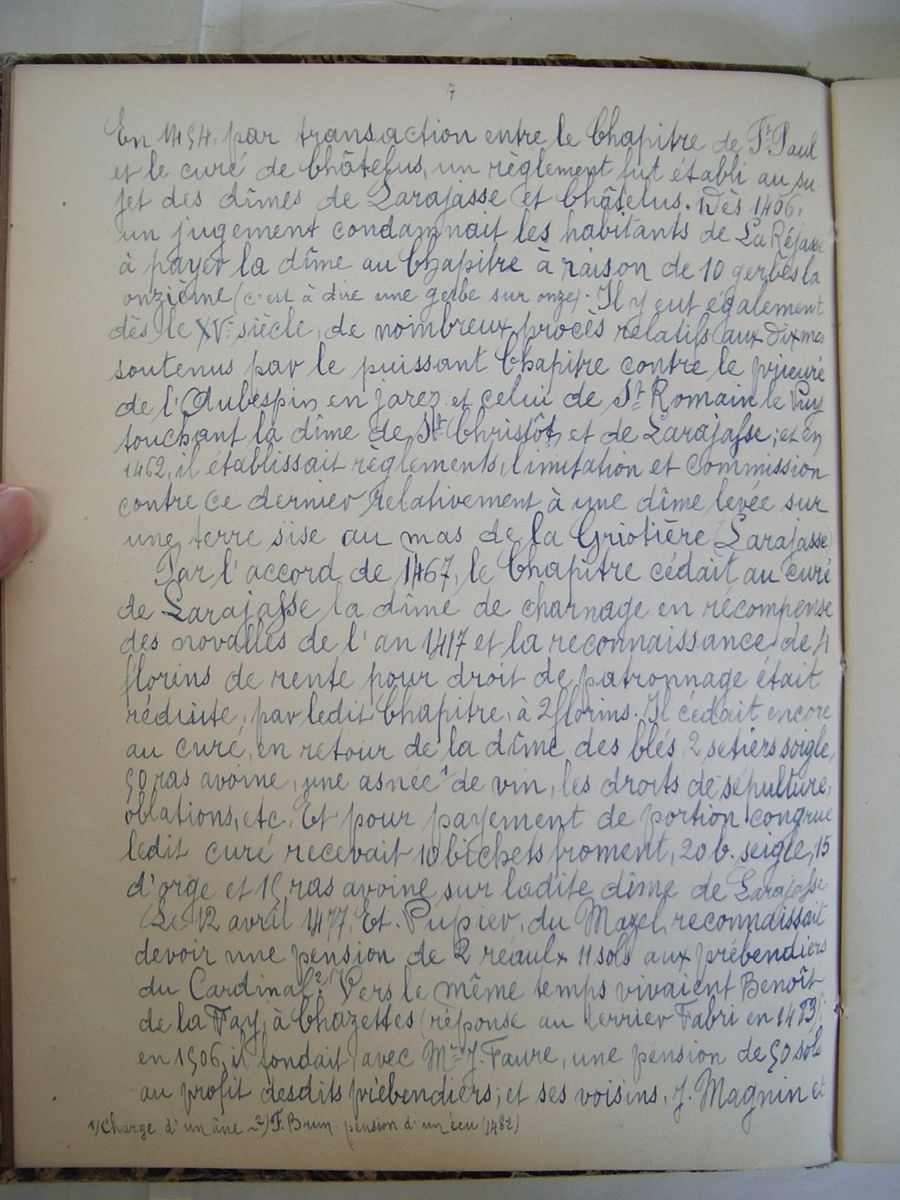 7
En 1454, par transaction entre le Chapitre de St Paul
et le curé de Châtelus, un règlement fut établi au su-
jet des dîmes de Larajasse et Châtelus. Dès 1456,
un jugement condamnait les habitants de La Réjasse
à payer la dîme au Chapitre à raison de 10 gerbes la
onzième (c'est à dire une gerbe sur onze). Il y eut également
dès le XVe siècle, de nombreux procès relatifs aux dixmes
soutenus par le puissant Chapitre contre le prieuré
de l'Aubespin en jarez et celui de St Romain le Puy
touchant la dîme de St Christôt, et de Larajasse; et en
1462, il établissait règlements, limitation et commission
contre ce dernier relativement à une dîme levée sur
une terre sise au mas de la Griotière (Larajasse)
Par l'accord de 1467, le Chapitre cédait au curé
de Larajasse la dîme de charnage en récompense
des novalles de l'an 1417 et la reconnaissance de 4
florins de rente pour droit de patronnage était
réduite, par ledit Chapitre, à 2 florins. Il cédait encore
au curé, en retour de la dîme des blés, 2 setiers soigle,
50 ras avoine, une asnée 1 de vin, les droits de sépulture,
oblations, etc. Et pour payement de portion congrue
ledit curé recevait 10 bichets froment, 20 b. seigle, 15
d'orge et 15 ras avoine sur ladite dîme de Larajasse
Le 12 avril 1477, Et. Pupier, du Mazel, reconnaissait
devoir une pension de 2 réaulx 11 sols aux prébendiers
du Cardinal 2). Vers le même temps vivaient Benoît
de la Fay, à Chazettes (réponse au terrier Fabri en 1483);
en 1506, il fondait avec Mre J. Faure, une pension de 50 sols
au profit desdits prébendiers; et ses voisins, J. Magnin et
1) Charge d'un âne - 2) F. Brun pension d'un écu (1482)